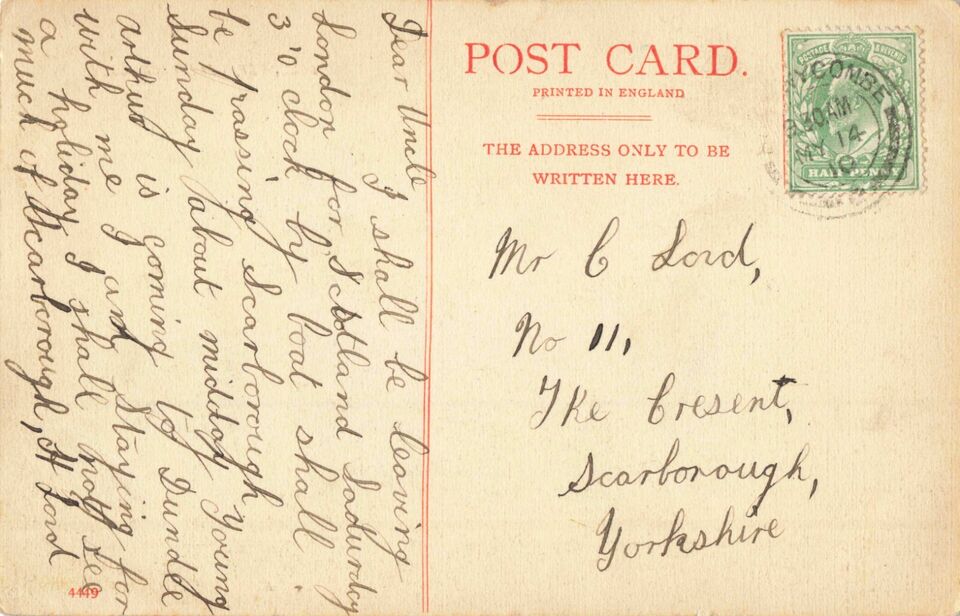 Dear Uncle
I shall be leaving
London for Scotland Sadurday
3'o clock by boat shall
be prassing Scarborough
Sunday about midday Young
arthur is goming to Dundee
with me I am staying for
a holiday I shall not see
much of Scarborough, H Lord
4449
POST CARD.
PRINTED IN ENGLAND
THE ADDRESS ONLY TO BE
WRITTEN HERE.
POSTAGE & REVENUE
HALFPENNY
WYCOMBE
30AM
MY 14
Mr C Lord,
No 11,
The Cresent,
Scarborough,
Yorkshire